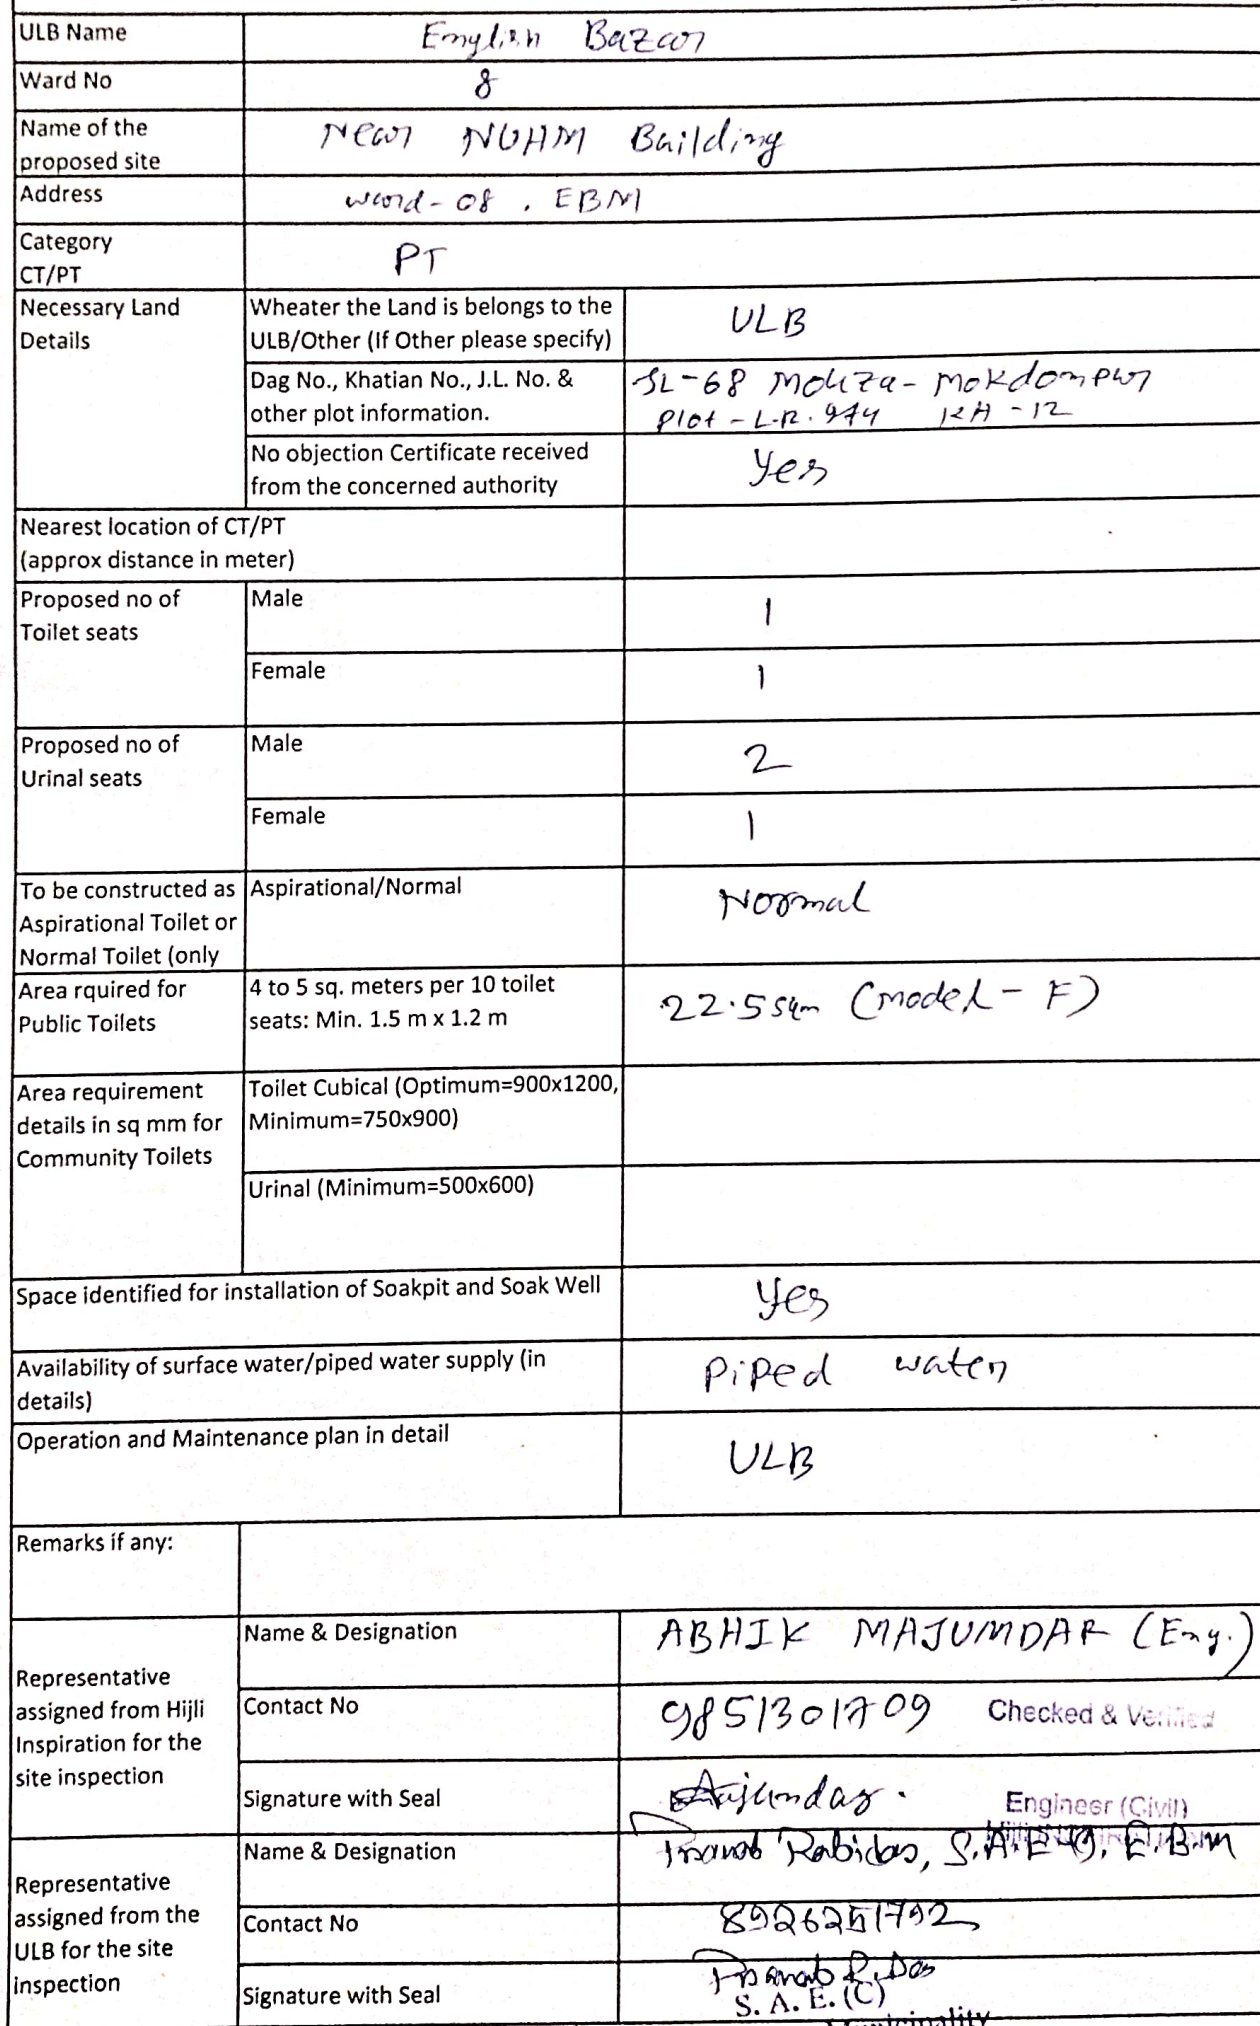 ULB Name
English Bazar
Ward No
8
Name of the
proposed site
Near NUHM Building
Address
ward-08 . EBM
Category
CT/PT
PT
Necessary Land
Details
Wheater the Land is belongs to the
ULB/Other (If Other please specify)
ULB
Dag No., Khatian No., J.L. No. &
other plot information.
JL-68 Mouza- Mokdompur
Plot - L.R. 944 KH - 12
No objection Certificate received
from the concerned authority
Yes
Nearest location of CT/PT
(approx distance in meter)
Proposed no of
Toilet seats
Male
1
Female
1
Proposed no of
Urinal seats
Male
2
Female
1
To be constructed as
Aspirational Toilet or
Normal Toilet (only
Aspirational/Normal
Normal
Area rquired for
Public Toilets
4 to 5 sq. meters per 10 toilet
seats: Min. 1.5 m x 1.2 m
22.5 sqm (model - F)
Area requirement
details in sq mm for
Community Toilets
Toilet Cubical (Optimum=900x1200,
Minimum=750x900)
Urinal (Minimum=500x600)
Space identified for installation of Soakpit and Soak Well
Yes
Availability of surface water/piped water supply (in
details)
Piped water
Operation and Maintenance plan in detail
ULB
Remarks if any:
Representative
assigned from Hijli
Inspiration for the
site inspection
Name & Designation
ABHIK MAJUMDAR (Eng.)
Contact No
9851301709
Checked & Verified
Signature with Seal
Engineer (Civil)
Representative
assigned from the
ULB for the site
inspection
Name & Designation
Pranab Rabidas, S.A.E E.B.M
Contact No
8926251792
Signature with Seal
Pranab R. Das
S. A. E. (C)
Municipality